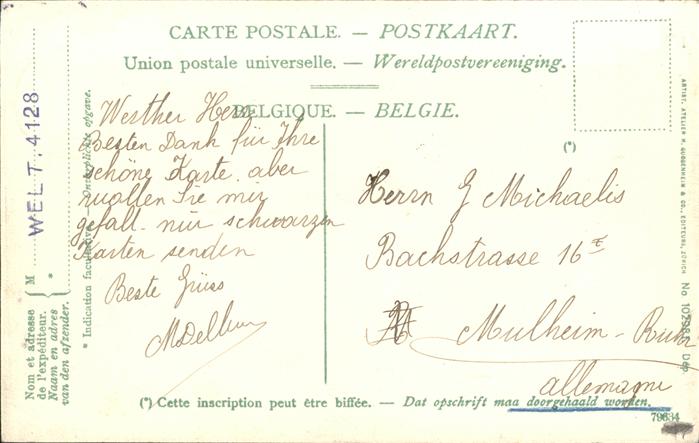 CARTE POSTALE. — POSTKAART.
Union postale universelle. — Wereldpostvereeniging.
BELGIQUE. — BELGIE.
Werther Herr
Besten Dank für Ihre
schöne Karte. aber
wollen Sie mir
gefall. nur schwarzen
Karten senden
Beste Grüss
(*)
Herrn G Michaelis
Bachstrasse 16
Mulheim - Ruhr
allemagne
(*) Cette inscription peut être biffée. — Dat opschrift maa doorgehaald worden.
79634
WELT. 4128
M *
Nom et adresse
de l'expéditeur.
Naam en adres
van den afzender.
* Indication facultative. — Onverplichte opgave.
ARTIST. ATELIER H. GUGGENHEIM & CO., EDITEURS, ZÜRICH No Dép.